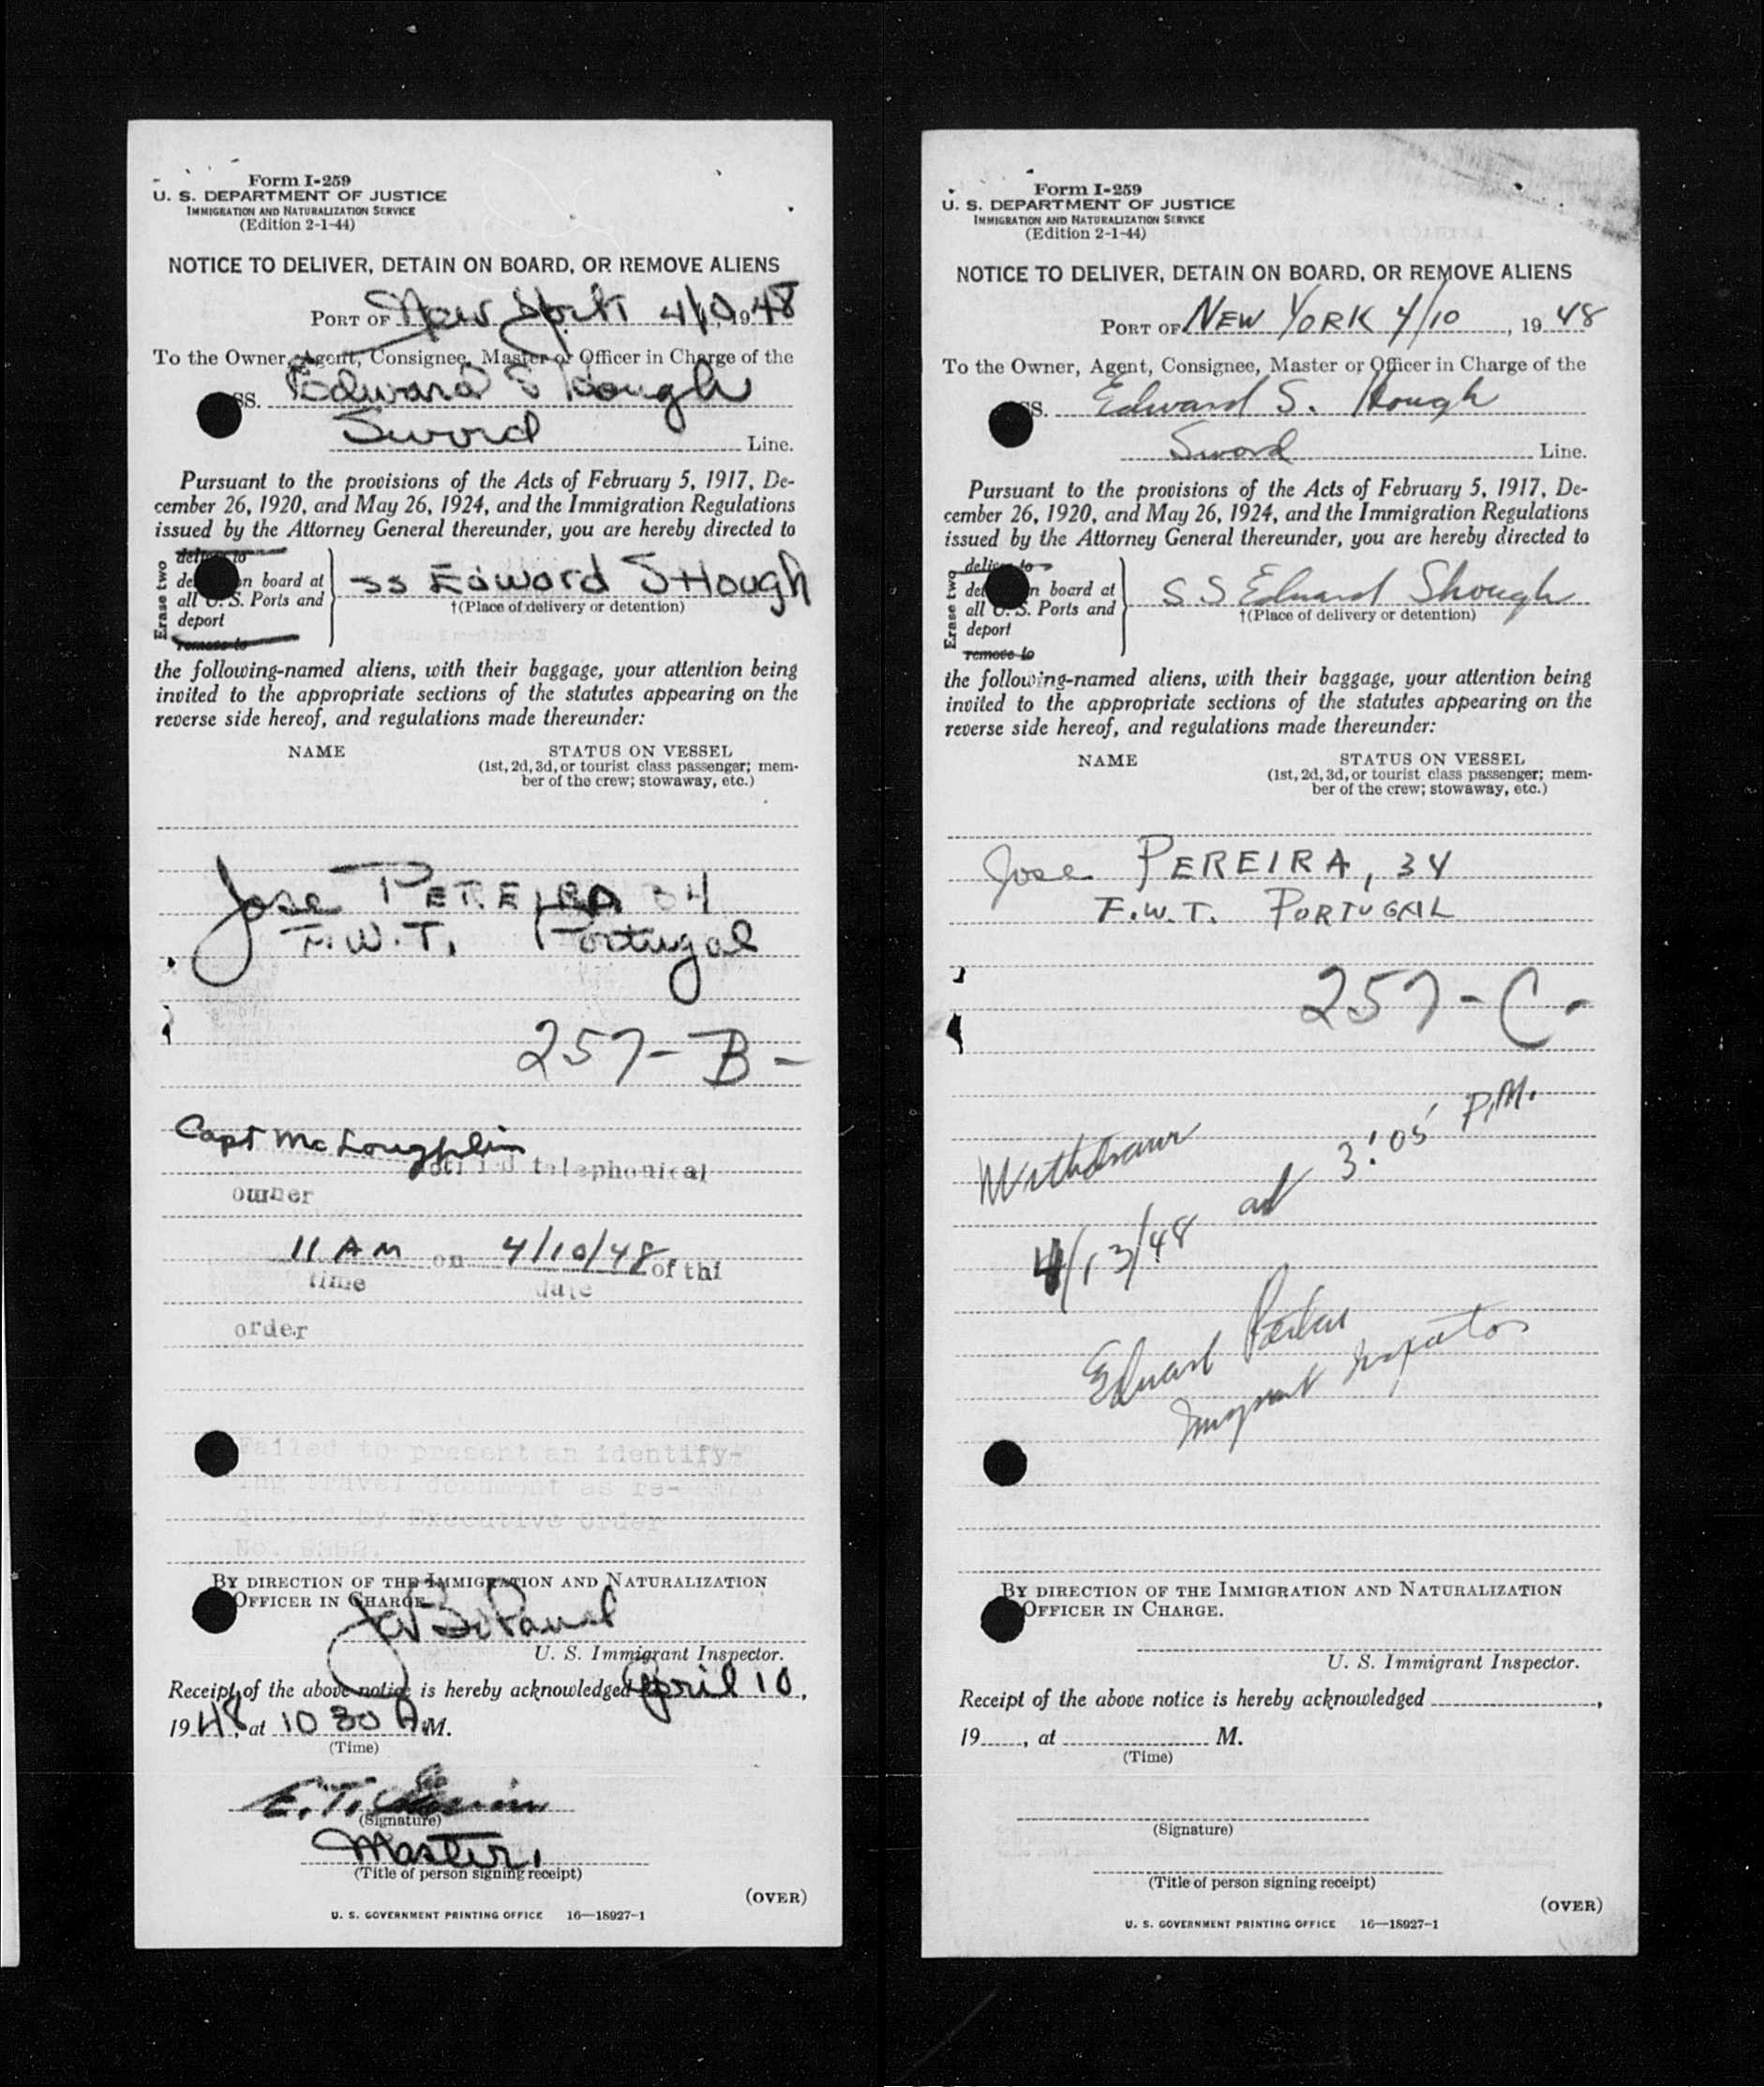 Form I-259
U. S. DEPARTMENT OF JUSTICE
IMMIGRATION AND NATURALIZATION SERVICE
(Edition 2-1-44)
NOTICE TO DELIVER, DETAIN ON BOARD, OR REMOVE ALIENS
PORT OF New York 4/10, 1948
To the Owner, Agent, Consignee, Master or Officer in Charge of the
SS. Edward S Hough
Sword Line.
Pursuant to the provisions of the Acts of February 5, 1917, De-
cember 26, 1920, and May 26, 1924, and the Immigration Regulations
issued by the Attorney General thereunder, you are hereby directed to
Erase two
deliver to
on board at
all U. S. Ports and
deport
remove to
SS Edward SHough
†(Place of delivery or detention)
the following-named aliens, with their baggage, your attention being
invited to the appropriate sections of the statutes appearing on the
reverse side hereof, and regulations made thereunder:
NAME STATUS ON VESSEL
(1st, 2d, 3d, or tourist class passenger; mem-
ber of the crew; stowaway, etc.)
Jose PEREIRA 34
F.W.T. Portugal
257-B-
Capt McLoughlin
notified telephonical
owner
11 AM on 4/10/48 of thi
time date
order
Failed to present an identify-
ing travel document as re-
quired by Executive Order
No.
BY DIRECTION OF THE IMMIGRATION AND NATURALIZATION
OFFICER IN CHARGE.
U. S. Immigrant Inspector.
Receipt of the above notice is hereby acknowledged April 10,
1948, at 10 30 A.M.
(Time)
E.T.
(Signature)
Master,
(Title of person signing receipt)
(OVER)
U. S. GOVERNMENT PRINTING OFFICE 16—18927-1
Form I-259
U. S. DEPARTMENT OF JUSTICE
IMMIGRATION AND NATURALIZATION SERVICE
(Edition 2-1-44)
NOTICE TO DELIVER, DETAIN ON BOARD, OR REMOVE ALIENS
PORT OF NEW YORK 4/10, 1948
To the Owner, Agent, Consignee, Master or Officer in Charge of the
SS. Edward S. Hough
Sword Line.
Pursuant to the provisions of the Acts of February 5, 1917, De-
cember 26, 1920, and May 26, 1924, and the Immigration Regulations
issued by the Attorney General thereunder, you are hereby directed to
Erase two
deliver to
on board at
all U. S. Ports and
deport
remove to
SS Edward Shough
†(Place of delivery or detention)
the following-named aliens, with their baggage, your attention being
invited to the appropriate sections of the statutes appearing on the
reverse side hereof, and regulations made thereunder:
NAME STATUS ON VESSEL
(1st, 2d, 3d, or tourist class passenger; mem-
ber of the crew; stowaway, etc.)
Jose PEREIRA, 34
F.W.T. PORTUGAL
257-C-
Withdrawn
4/13/48 at 3:05 P.M.
Edward
Immigrant Inspector
BY DIRECTION OF THE IMMIGRATION AND NATURALIZATION
OFFICER IN CHARGE.
U. S. Immigrant Inspector.
Receipt of the above notice is hereby acknowledged ,
19 , at M.
(Time)
(Signature)
(Title of person signing receipt)
(OVER)
U. S. GOVERNMENT PRINTING OFFICE 16—18927-1